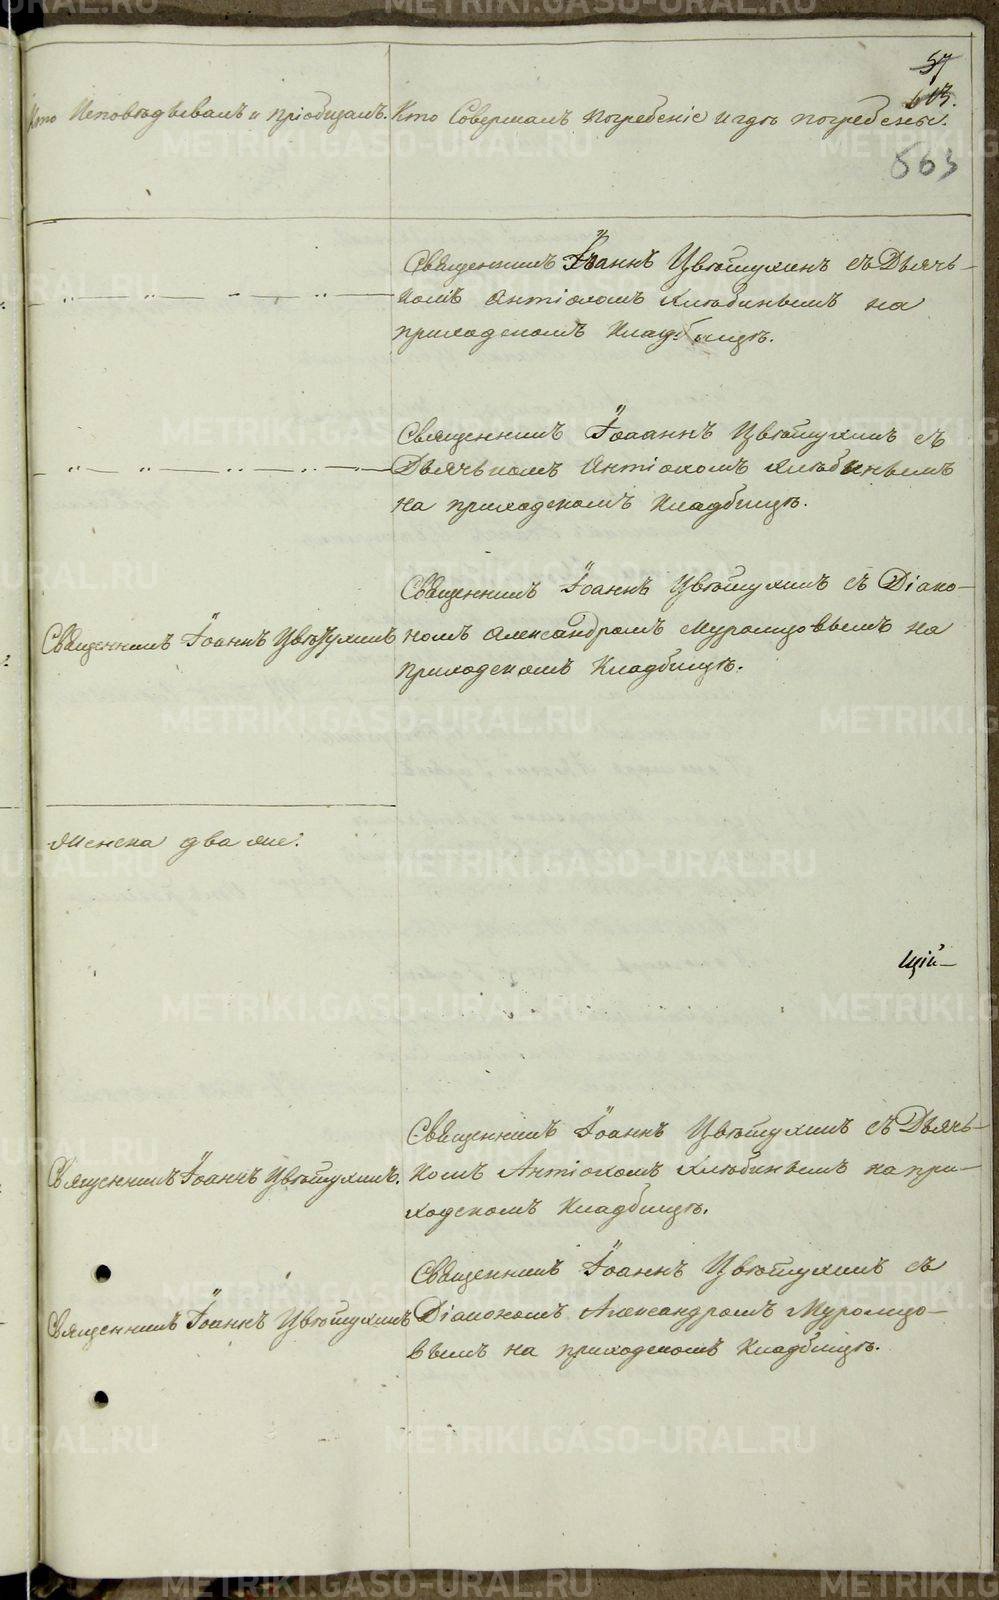 57
613.
563
Кто Исповѣдывалъ и пріобщалъ.
Кто Совершалъ погребеніе и гдѣ погребены.
Священникъ Іоаннъ Цвѣтухинъ съ Дьячь-
комъ Антіохомъ Хлѣбинымъ на
приходскомъ Кладбищѣ.
Священникъ Іоаннъ Цвѣтухинъ съ
Дьячькомъ Антіохомъ Хлѣбинымъ
на приходскомъ Кладбищѣ.
Священникъ Іоаннъ Цвѣтухинъ
Священникъ Іоаннъ Цвѣтухинъ съ Діако-
номъ Александромъ Муромцовымъ на
приходскомъ Кладбищѣ.
женска два же.
щій
Священникъ Іоаннъ Цвѣтухинъ.
Священникъ Іоаннъ Цвѣтухинъ съ Дьячь-
комъ Антіохомъ Хлѣбинымъ на при-
ходскомъ Кладбищѣ.
Священникъ Іоаннъ Цвѣтухинъ
Священникъ Іоаннъ Цвѣтухинъ съ
Діакономъ Александромъ Муромцо-
вымъ на приходскомъ Кладбищѣ.
METRIKI.GASO-URAL.RU